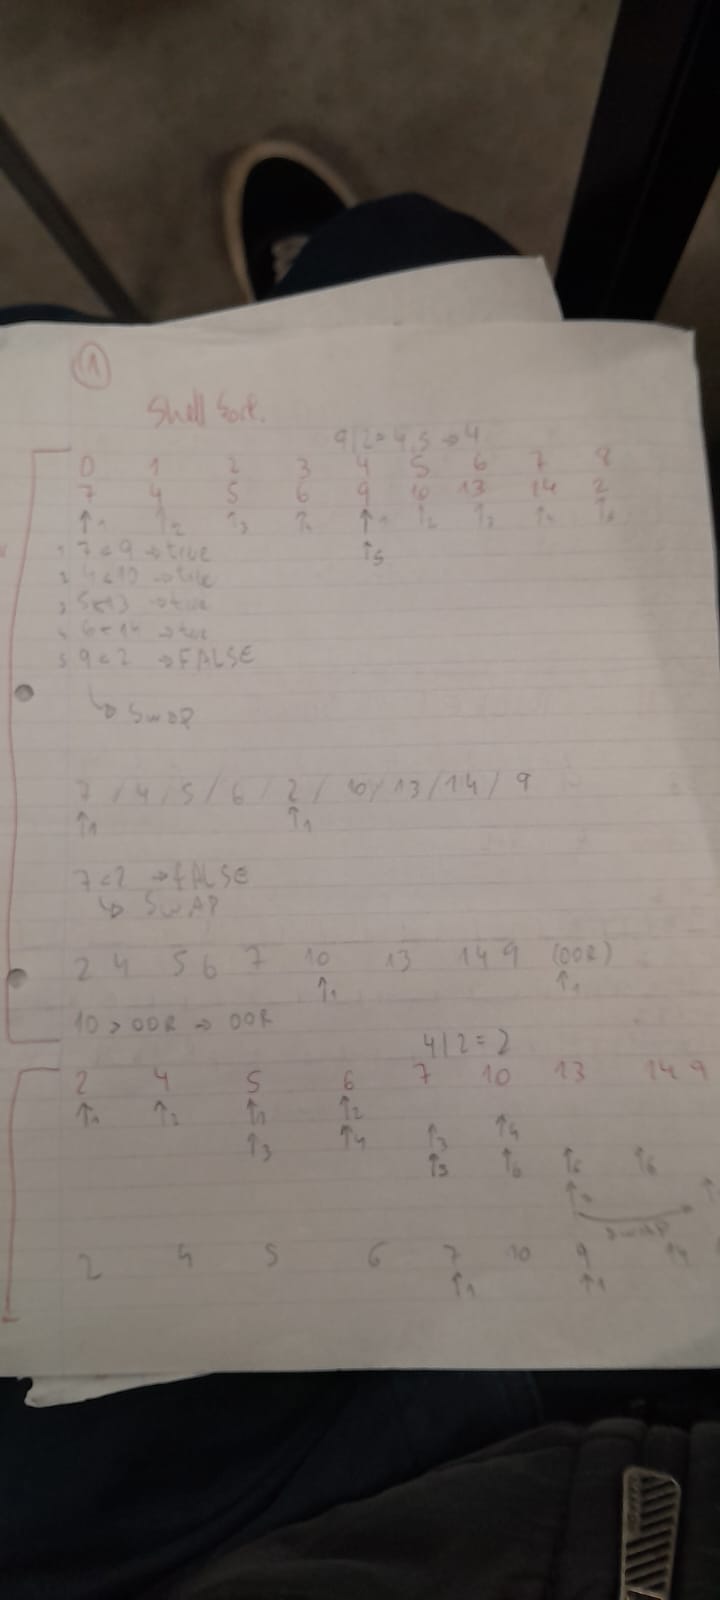 1
Shell Sort.
9/2 = 4,5 → 4
0 1 2 3 4 5 6 7 8
7 4 5 6 9 10 13 14 2
↑1 ↑2 ↑3 ↑4 ↑1 ↑2 ↑3 ↑4 ↑5
1 7 < 9 → true ↑5
2 4 < 10 → true
3 5 < 13 → true
4 6 < 14 → true
5 9 < 2 → FALSE
↳ Swap
7 / 4 / 5 / 6 / 2 / 10 / 13 / 14 / 9
↑1 ↑1
7 < 2 → FALSE
↳ SWAP
2 4 5 6 7 10 13 14 9 (OOR)
↑1 ↑1
10 > OOR → OOR
4/2 = 2
2 4 5 6 7 10 13 14 9
↑1 ↑2 ↑1 ↑2
↑3 ↑4 ↑3 ↑4
↑5 ↑6 ↑6
SWAP
2 4 5 6 7 10 9 14
↑1 ↑1